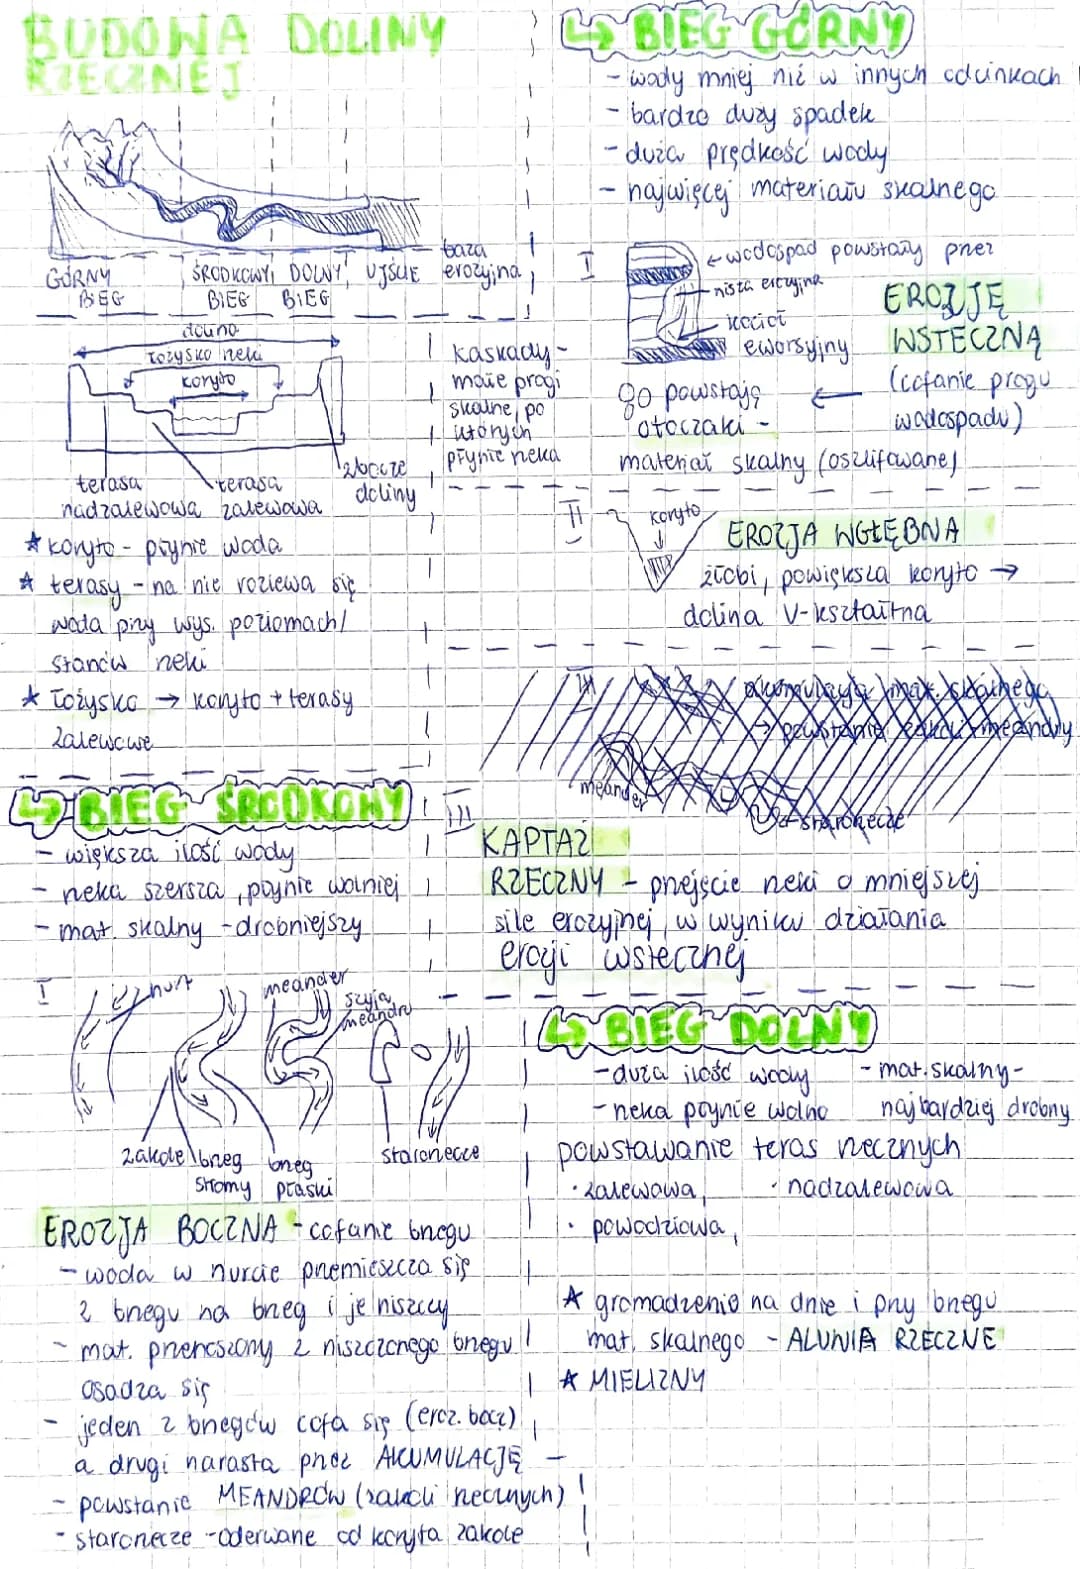 BUDOWA DOLINY
RZECZNEJ
GÓRNY
BIEG
ŚRODKOWY
BIEG
DOLNY
BIEG
UJŚCIE
baza
erozyjna
dolina
łożysko rzeki
koryto
terasa
nadzalewowa
terasa
zalewowa
zbocze
doliny
kaskady -
małe progi
skalne, po
których
płynie rzeka
★ koryto - płynie woda
★ terasy - na nie rozlewa się
woda przy wys. poziomach/
stanów rzeki
★ łożysko → koryto + terasy
zalewowe
↳ BIEG GÓRNY
- wody mniej niż w innych odcinkach
- bardzo duży spadek
- duża prędkość wody
- najwięcej materiału skalnego
I
← wodospad powstały przez
nisza erozyjna
kocioł
eworsyjny
EROZJĘ
WSTECZNĄ
(cofanie progu
wodospadu)
go powstają ←
otoczaki -
materiał skalny (oszlifowane)
II
koryto
EROZJA WGŁĘBNA
żłobi, powiększa koryto →
dolina V-kształtna
III
akumulacja mat. skalnego
→ powstanie zakoli meandry
meander
starorzecze
III
KAPTAŻ
RZECZNY - przejęcie rzeki o mniejszej
sile erozyjnej, w wyniku działania
erozji wstecznej
↳ BIEG ŚRODKOWY
- większa ilość wody
- rzeka szersza, płynie wolniej
- mat. skalny - drobniejszy
I
nurt
meander
szyja
meandru
zakole
brzeg
stromy
brzeg
płaski
starorzecze
EROZJA BOCZNA - cofanie brzegu
- woda w nurcie przemieszcza się
z brzegu na brzeg i je niszczy
- mat. przenoszony z niszczonego brzegu
osadza się
- jeden z brzegów cofa się (eroz. bocz)
a drugi narasta przez AKUMULACJĘ
- powstanie MEANDRÓW (zakoli rzecznych)
- starorzecze - oderwane od koryta zakole
↳ BIEG DOLNY
- duża ilość wody
- rzeka płynie wolno
- mat. skalny -
najbardziej drobny
powstawanie teras rzecznych
· zalewowa,
· nadzalewowa
· powodziowa,
★ gromadzenie na dnie i przy brzegu
mat. skalnego - ALUWIA RZECZNE
★ MIELIZNY